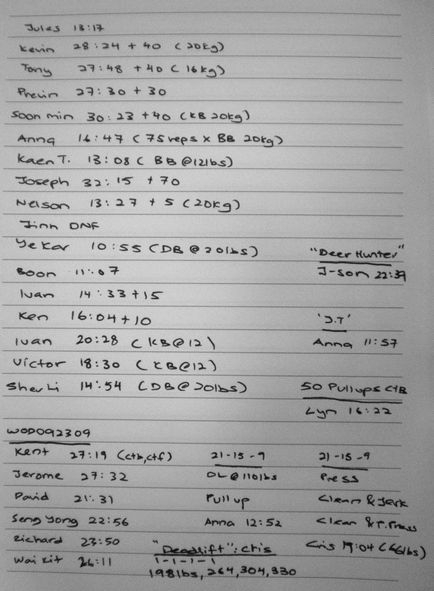 Jules 13:17
Kevin 28:24 + 40 (20kg)
Tony 27:48 + 40 (16kg)
Previn 27:30 + 30
Soon min 30:23 + 40 (KB 20kg)
Anna 16:47 (75 reps x BB 20kg)
Kaen T. 13:08 (BB @ 12lbs)
Joseph 32:15 + 70
Nelson 13:27 + 5 (20kg)
Jinn DNF
Ye Kar 10:55 (DB @ 20lbs) "Deer Hunter"
Boon 11:07 J-son 22:39
Ivan 14:33 + 15
Ken 16:04 + 10 'J.T'
Ivan 20:28 (KB @ 12) Anna 11:57
Victor 18:30 (KB @ 12)
Sher Li 14:54 (DB @ 20lbs) 50 Pullups CTB
Lyn 16:22
WOD092309
Kent 27:19 (ctb, ctf) 21-15-9 21-15-9
Jerome 27:32 DL @ 110lbs Press
David 21:31 Pull up Clean & Jerk
Seng Yong 22:56 Anna 12:52 Clean & P. Press
Richard 23:50 "Deadlift": Cris Cris 19:04 (66lbs)
Wai Kit 26:11 1-1-1-1
198lbs, 264, 304, 330